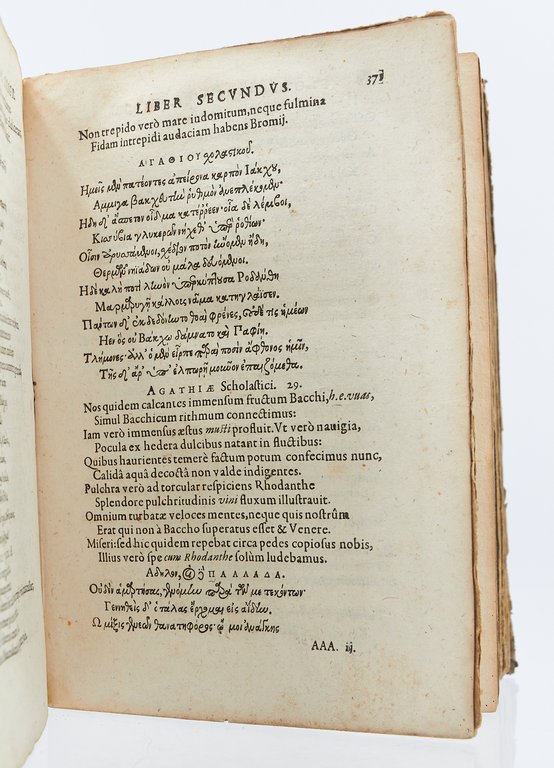 LIBER SECVNDVS. 371
Non trepido verò mare indomitum, neque fulmina
Fidam intrepidi audaciam habens Bromij.
ΑΓΑΘΙΟΥ σχολαστικοῦ.
Ἡμεῖς μὲν πατέοντες ἀπείρονα καρπὸν Ἰάκχου,
Ἄμμιγα βακχευτὴν ῥυθμὸν ἀνεπλέκομεν·
Ἤδη δ' ἄσπετον οἶδμα κατέρρεεν· οἷα δὲ λέμβοι,
Κισσύβια γλυκερῶν νήχεθ' ὑπὲρ ῥοθίων·
Οἷσιν ἀρυσσάμενοι, σχέδιον ποτὸν ἤνομεν ἤδη,
Θερμῶν νηιάδων οὐ μάλα δευόμενοι.
Ἡ δὲ καλὴ ποτὶ ληνὸν ὑπερκύπτουσα Ῥοδάνθη
Μαρμαρυγῆς κάλλους νᾶμα κατηγλάισεν.
Πάντων δ' ἐκδεδόνηντο θοαὶ φρένες, οὐδέ τις ἡμέων
Ἦεν ὃς οὐ Βάκχῳ δάμνατο καὶ Παφίῃ.
Τλήμονες· ἀλλ' ὁ μὲν εἷρπε παραὶ ποσὶν ἄφθονος ἡμῖν,
Τῆς δ' ἄρ' ὑπ' ἐλπωρῇ μοῦνον ἐπαιζόμεθα.
AGATHIÆ Scholastici. 29.
Nos quidem calcantes immensum fructum Bacchi, h.e. vuas,
Simul Bacchicum rithmum connectimus:
Iam verò immensus æstus musti profluit. Vt verò nauigia,
Pocula ex hedera dulcibus natant in fluctibus:
Quibus haurientes temerè factum potum confecimus nunc,
Calidâ aquâ decoctâ non valde indigentes.
Pulchra verò ad torcular respiciens Rhodanthe
Splendore pulchritudinis vini fluxum illustrauit.
Omnium turbatæ veloces mentes, neque quis nostrûm
Erat qui non à Baccho superatus esset & Venere.
Miseri: sed hic quidem repebat circa pedes copiosus nobis,
Illius verò spe cum Rhodanthe solùm ludebamus.
Ἄδηλον, ΠΑΛΛΑΔΑ.
Οὐδὲν ἁμαρτήσας, γενόμην παρὰ τῶν με τεκόντων·
Γεννηθεὶς δ' ὁ τάλας ἔρχομαι εἰς ἀίδην.
Ω μῖξις γονέων θανατηφόρος· ὤ μοι ἀνάγκης
AAA. ij.